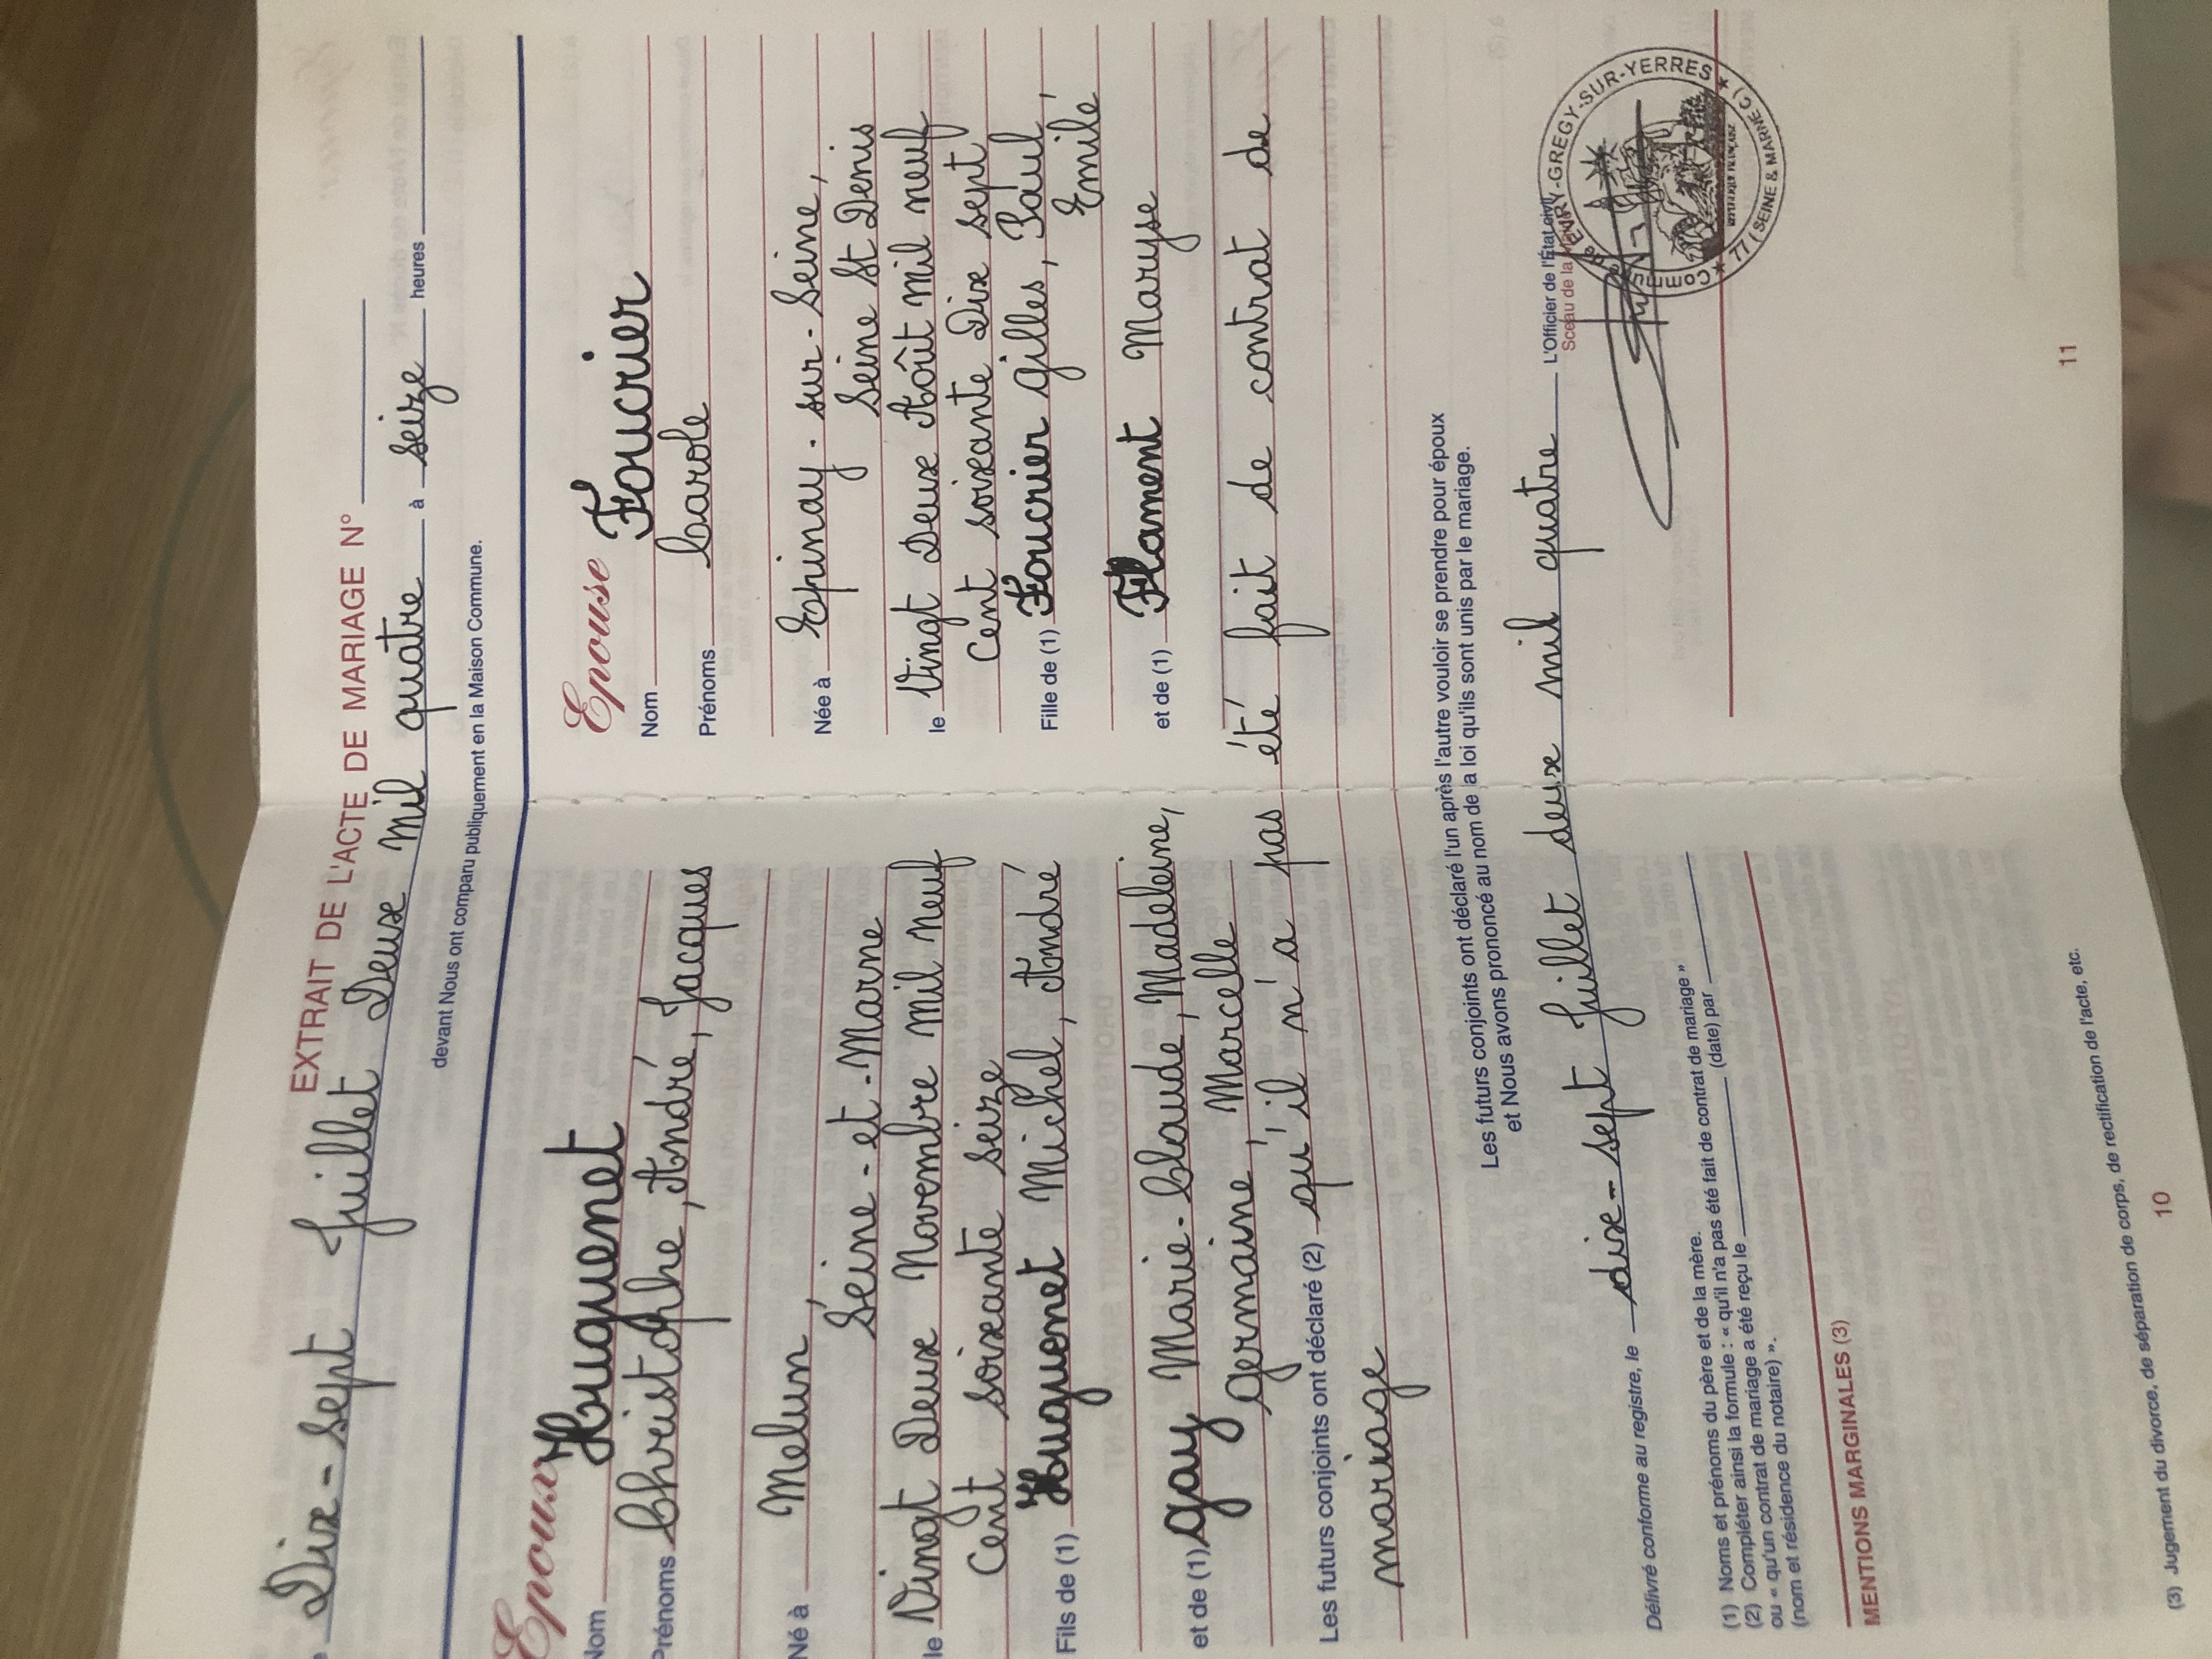 EXTRAIT DE L'ACTE DE MARIAGE N°
Dix-sept Juillet Deux Mil quatre à Seize heures
devant Nous ont comparu publiquement en la Maison Commune.
Epoux
Nom Huguenet
Prénoms Christophe, André, Jacques
Né à Melun,
Seine-et-Marne
le Vingt Deux Novembre Mil Neuf
Cent soixante seize
Fils de (1) Huguenet Michel, André
et de (1) Gay Marie-Claude, Madeleine,
Germaine, Marcelle
Epouse
Nom Foucrier
Prénoms Carole
Née à Epinay-sur-Seine,
Seine St Denis
le Vingt Deux Août Mil neuf
Cent soixante Dix sept
Fille de (1) Foucrier Gilles, Paul,
Emile
et de (1) Flament Maryse
Les futurs conjoints ont déclaré (2) qu'il n'a pas été fait de contrat de
mariage
Les futurs conjoints ont déclaré l'un après l'autre vouloir se prendre pour époux
et Nous avons prononcé au nom de la loi qu'ils sont unis par le mariage.
Délivré conforme au registre, le dix-sept Juillet deux mil quatre
L'Officier de l'État civil,
Sceau de la Mairie
COMMUNE DE EVRY-GREGY-SUR-YERRES
★ 77 (SEINE & MARNE) ★
RÉPUBLIQUE FRANÇAISE
(1) Noms et prénoms du père et de la mère.
(2) Compléter ainsi la formule : « qu'il n'a pas été fait de contrat de mariage »
ou « qu'un contrat de mariage a été reçu le (date) par
(nom et résidence du notaire) ».
MENTIONS MARGINALES (3)
(3) Jugement du divorce, de séparation de corps, de rectification de l'acte, etc.
10
11